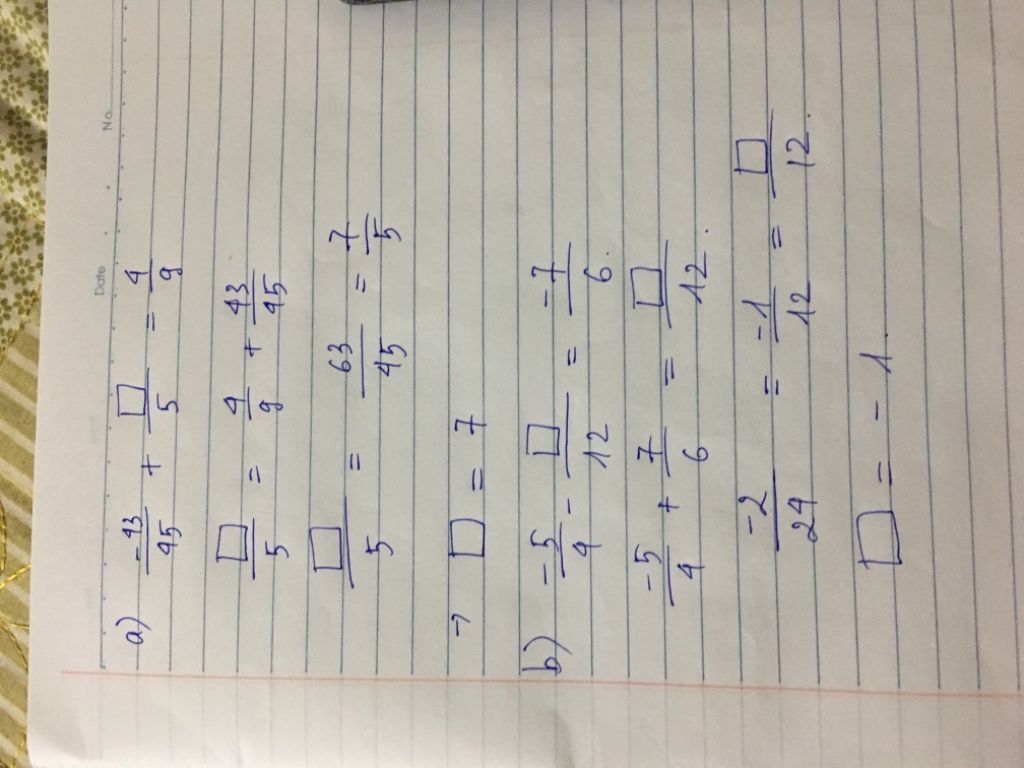 Date No.
a) -43/45 + □/5 = 4/9
□/5 = 4/9 + 43/45
□/5 = 63/45 = 7/5
→ □ = 7
b) -5/4 - □/12 = -7/6.
-5/4 + 7/6 = □/12.
-2/24 = -1/12 = □/12.
□ = -1.